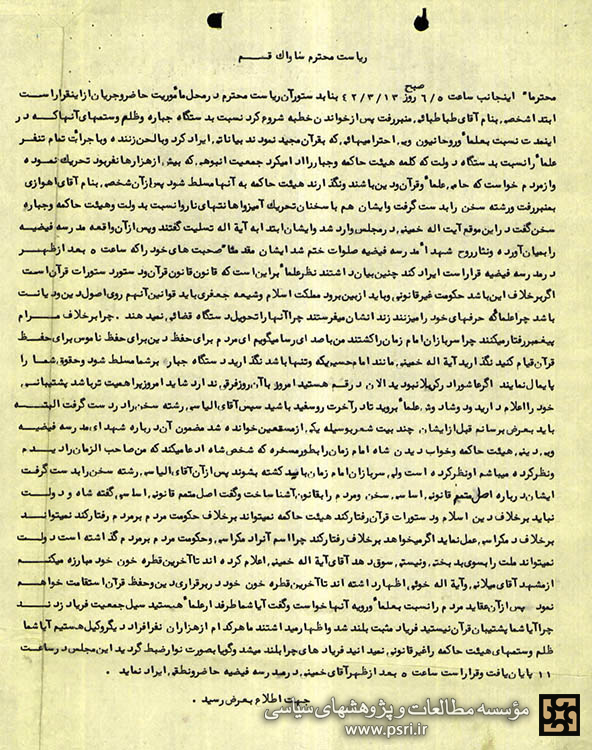 ریاست محترم ساواک قـــم
صبح
محترما" اینجانب ساعت ۶/۵ روز ۴۲/۳/۱۳ بنا بدستور آن ریاست محترم در محل مأموریت حاضر و جریان از اینقرار است
ابتدا شخصی بنام آقای طباطبائی منبر رفت پس از خواندن خطبه شروع کرد نسبت به دستگاه جباره و ظلم و ستمهای آنها که در
اینمدت نسبت بعلما" و روحانیون و بی احترامیهائی که بقرآن مجید نمودند بیاناتی ایراد کرد و بالحن زننده و با جرأت تمام تنفر
علما" را نسبت به دستگاه دولت که کلمه هیئت حاکمه و جبار را ادا میکرد جمعیت انبوهی که بیش از هزارها نفر بود تحریک نموده
و از مردم خواست که حامی علما" و قرآن و دین باشند و نگذارند هیئت حاکمه به آنها مسلط شود پس از آن شخصی بنام آقای اهوازی
بمنبر رفت و رشته سخن را بدست گرفت و ایشان هم با سخنان تحریک آمیز و اهانتهای ناروا نسبت به دولت و هیئت حاکمه و جباره
سخن گفت در این موقع آیت اله خمینی در مجلس وارد شد و ایشان ابتدا به آیة اله تسلیت گفتند و پس از آن واقعه مدرسه فیضیه
را بمیان آورده و نثار روح شهدا" مدرسه فیضیه صلوات ختم شد ایشان مقدمتا" صحبت های خود را که ساعت ۵ بعد از ظهر
در مدرسه فیضیه قرار است ایراد کند چنین بیان داشتند نظر علما" بر این است که قانون قانون قرآن و دستور دستورات قرآن است
اگر بر خلاف این باشد حکومت غیر قانونی و باید از بین برود مملکت اسلام و شیعه جعفری باید قوانین آنهم روی اصول دین و دیانت
باشد چرا علما که حرفهای خود را میزنند زندانشان میفرستند چرا آنها را تحویل دستگاه قضائی نمیدهند . چرا بر خلاف مرام
پیغمبر رفتار میکنند چرا سربازان امام زمان را کشتند من با صدای رسا میگویم ای مردم برای حفظ دین برای حفظ ناموس برای حفظ
قرآن قیام کنید نگذارید آیة اله خمینی مانند امام حسین یکه و تنها باشد نگذارید دستگاه جبار بر شما مسلط شود و حقوق شما را
پایمال نمایند اگر عاشورا در کربلا نبودید الان در قم هستید امروز با آن روز فرقی ندارد شاید امروز پر اهمیت تر باشد پشتیبانی
خود را اعلام دارید دوشادوش علما" بروید تا در آخرت روسفید باشید سپس آقای الیاسی رشته سخن را در دست گرفت البته
باید بعرض برسانم قبل از ایشان چند بیت شعر بوسیله یکی از مستمعین خوانده شد مضمون آن درباره شهدای مدرسه فیضیه
و بی دینی هیئت حاکمه و خواب دیدن شاه امام زمان را بطور مسخره که شخص شاه ادعا میکند که من صاحب الزمان را دیدم
و نظر کرده میباشم او نظر کرده است ولی سربازان امام زمان باید کشته بشوند پس از آن آقای الیاسی رشته سخن را بدست گرفت
ایشان درباره اصل متمم قانونی اساسی سخن و مردم را بقانون آشنا ساخت و گفت اصل متمم قانونی اساسی گفته شاه و دولت
نباید بر خلاف دین اسلام و دستورات قرآن رفتار کند هیئت حاکمه نمیتواند بر خلاف حکومت مردم بر مردم رفتار کند نمیتواند
بر خلاف دمکراسی عمل نماید اگر میخواهد بر خلاف رفتار کند چرا اسم آنرا دمکراسی و حکومت مردم بر مردم گذاشته است دولت
نمیتواند ملت را بسوی بدبختی و نیستی سوق دهد آقای آیة اله خمینی اعلام کرده اند تا آخرین قطره خون خود مبارزه میکنم
از مشهد آقای میلانی و آیة اله خوئی اظهار داشته اند تا آخرین قطره خون خود در برقراری دین و حفظ قرآن استقامت خواهم
نمود پس از آن عقاید مردم را نسبت بعلما" و رویه آنها خواست و گفت آیا شما طرفدار علما" هستید سیل جمعیت فریاد زدند
چرا آیا شما پشتیبان قرآن نیستید فریاد مثبت بلند شد و اظهار میداشتند ما هر کدام از هزاران نفر افراد دیگر وکیل هستیم آیا شما
ظلم و ستمهای هیئت حاکمه را غیر قانونی نمیدانید فریاد های چرا بلند میشد و گویا بصورت نوار ضبط گردید این مجلس در ساعت
۱۱ پایان یافت و قرار است ساعت ۵ بعد از ظهر آقای خمینی در مدرسه فیضیه حاضر و نطقی ایراد نماید .
جهت اطلاع بعرض رسید .
مؤسسه مطالعات و پژوهشهای سیاسی
www.psri.ir